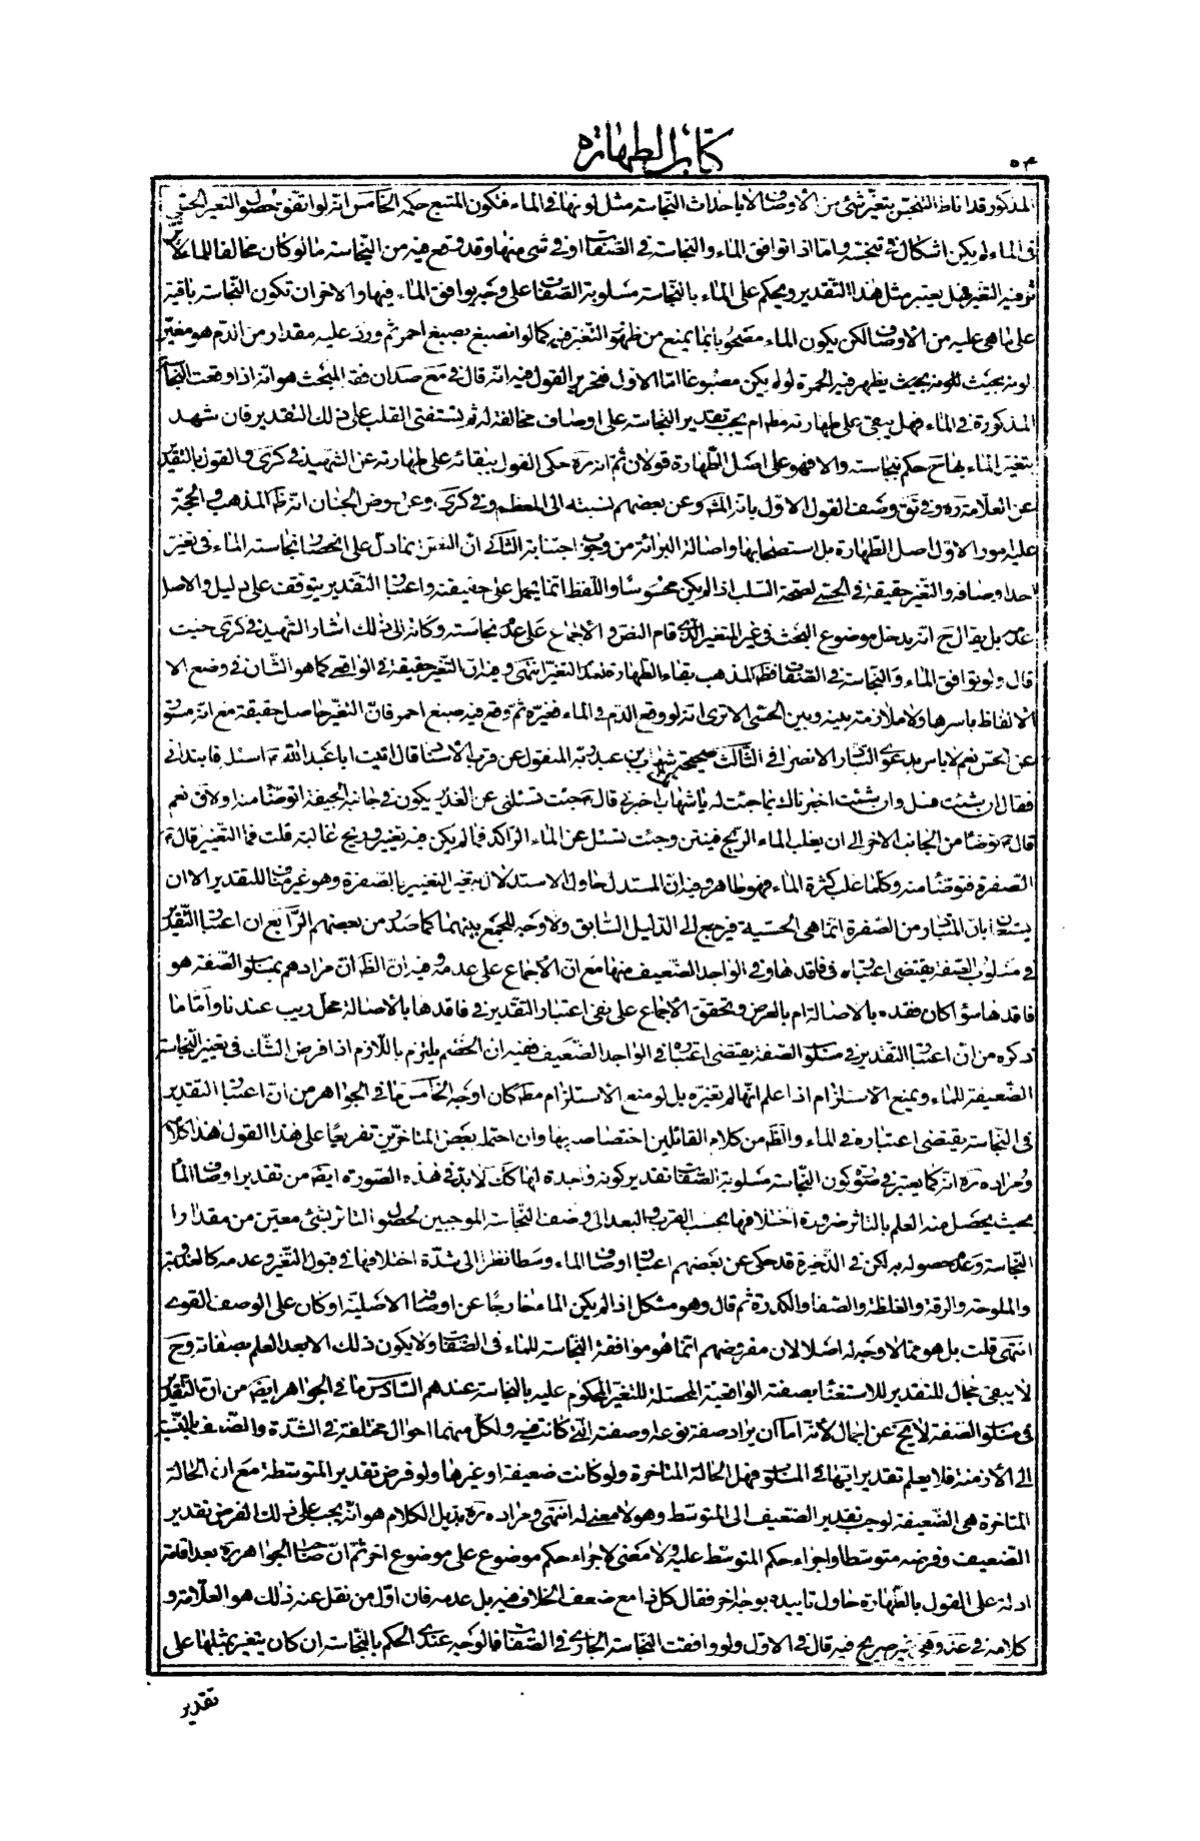 ٥٤
كتاب الطهارة
المذكور قد اناط التنجس بتغير شئ من الأوصاف الا باحداث النجاسة مثل لونها في الماء فيكون المتبع حكمه الخامس انه لو اتفق حصول التغير الحسي
في الماء لم يكن اشكال في تنجسه واما اذا توافق الماء والنجاسة في الصفات او في شئ منها وقد وقع فيه من النجاسة ما لو كان مخالفا للماء لأ
ثر فيه التغير فهل يعتبر مثل هذا التقدير ويحكم على الماء بالنجاسة مسلوبة الصفات على وجه يوافق الماء فيها والاخر ان تكون النجاسة باقية
على ما هي عليه من الأوصاف لكن يكون الماء مصحوبا بما يمنع من ظهور التغير فيه كما لو انصبغ بصبغ احمر ثم ورد عليه مقدار من الدم هو مغير
لونه بحيث يظهر فيه الحمرة لو لم يكن مصبوغا اما الأول فتحرير القول فيه انه قال في مع صد ان فقه المبحث هو انه اذا وقعت النجاسة
المذكورة في الماء فهل يبقى على طهارته مطم ام يجب تقدير النجاسة على اوصاف مخالفة له ثم يستفتى القلب على ذلك التقدير فان شهد
بتغير الماء بها ح حكم بنجاسته والا فهو على اصل الطهارة قولان ثم انه ره حكى القول ببقائه على طهارته عن الشهيد في كرى والقول بالتقدير
عن العلامة ره وفي وصف القول الاول بانه المش وعن بعضهم نسبته الى المعظم وفي كرى وعن روض الجنان انه ظ المذهب والحجة
عليه امور الاول اصل الطهارة بل استصحابها واصالة البرائة من وجوب اجتنابه الثاني ان النص انما دل على انحصار نجاسة الماء في تغير
احد اوصافه والتغير حقيقة في الحسي لصحة السلب اذا لم يكن محسوسا واللفظ انما يحمل على حقيقته واعتبار التقدير يتوقف على دليل والاصل
عدمه بل يقال ح انه يدخل موضوع البحث في غير المتغير الذي قام النص والاجماع على عدم نجاسته وكانه الى ذلك اشار الشهيد في كرى حيث
قال ولو توافق الماء والنجاسة في الصفات فظ المذهب بقاء الطهارة لعدم التغير انتهى وفيه ان التغير حقيقة في الواقعي كما هو الشان في وضع الا
الالفاظ باسرها ولا ملازمة بينه وبين الحسي الا ترى انه لو وقع الدم في الماء فغيره ثم وقع فيه صبغ احمر فان التغير حاصل حقيقة مع انه مستور
عن الحس نعم لا باس بدعوى التبادر الانصرافي الثالث صحيحة شهاب بن عبد ربه المنقول عن قرب الأسناد قال اتيت ابا عبد الله ع اسئله فابتدانى
فقال ان شئت فسل وان شئت اخبرناك بما جئت له يا شهاب اخبرنى قال ع جئت تسئلنى عن الغدير يكون في جانبه الجيفة اتوضا منه اولا ق نعم
قال ع توضا من الجانب الاخر الى ان يغلب الماء الريح فينتن وجئت تسئل عن الماء الراكد فما لم يكن فيه تغير وريح غالبة قلت فما التغير قال ع
الصفرة فتوضئا منه وكلما غلب كثرة الماء فهو طاهر وفيه ان المستدل حاول الاستدلال بتفسير التغيير بالصفرة وهو غير مثبت للتقدير الا ان
يستدل بان المتبادر من الصفرة انما هي الحسية فيرجع الى الدليل السابق ولا وجه للجمع بينهما كما صدر من بعضهم الرابع ان اعتبار التقدير
في مسلوب الصفة يقتضي اعتباره في فاقدها وفي الواجد الضعيف منها مع ان الاجماع على عدمه وفيه ان الظ ان مرادهم بمسلوب الصفة هو
فاقدها سواء كان فقده بالاصالة ام بالعرض وتحقق الاجماع على نفي اعتبار التقدير في فاقدها بالأصالة محل ريب عندنا واما ما
ذكره من ان اعتبار التقدير في مسلوب الصفة يقتضي اعتباره في الواجد الضعيف ففيه ان الخصم يلتزم باللازم اذا فرض الشك في تغيير النجاسة
الضعيفة للماء ويمنع الاستلزام اذا علم انها لم تغيره بل لو منع الاستلزام مطم كان اوجه الخامس ما في الجواهر من ان اعتبار التقدير
في النجاسة يقتضي اعتباره في الماء والظ من كلام القائلين اختصاصه بها وان احتمله بعض المتاخرين تفريعا على هذا القول هذا كلامه
ومراده ره انه كما يعتبر في صورة كون النجاسة مسلوبة الصفات تقدير كونه واجدة لها كك لا بد في هذه الصورة ايضا من تقدير اوصاف الماء
بحيث يحصل منه العلم بالتاثر ضرورة اختلافها بحسب القرب والبعد الى وصف النجاسة الموجبين لحصول التاثر بشئ معين من مقدار ا
النجاسة وعدم حصوله به لكن في الذخيرة قد حكى عن بعضهم اعتبار اوصاف الماء وسطا نظرا الى شدة اختلافها في قبول التغير وعدمه كالعذوبة
والملوحة والرقة والغلظة والصفا والكدرة ثم قال وهو مشكل اذا لم يكن الماء خارجا عن اوصافه الاصلية او كان على الوصف القوى
انتهى قلت بل هو مما لا وجه له اصلا لان مفروضهم انما هو موافقة النجاسة للماء في الصفات ولا يكون ذلك الا بعد العلم بصفاته وح
لا يبقى مجال للتقدير للاستغناء بصفته الواقعية المحصلة للتغير المحكوم عليه بالنجاسة عندهم السادس ما في الجواهر ايضا من ان التقدير
في مسلوب الصفة لا يخ عن اجمال لأنه اما ان يراد صفة نوعه او صفته التي كانت فيه ولكل منهما احوال مختلفة في الشدة والضعف بالنسبة
الى الأزمنة فلا يعلم تقدير ايها في المسلوب فهل الحالة المتاخرة ولو كانت ضعيفة او غيرها ولو فرض تقدير المتوسطة مع ان الحالة
المتاخرة هي الضعيفة لوجب تقدير الضعيف الى المتوسط وهو لا معنى له انتهى ومراده ره بذيل الكلام هو انه يجب على ذلك الفرض تقدير
الضعيف وفرضه متوسطا واجراء حكم المتوسط عليه ولا معنى لاجراء حكم موضوع على موضوع اخر ثم ان صاحب الجواهر ره بعد اقامة
ادلة على القول بالطهارة حاول تاييده بوجه اخر فقال كل ذا مع ضعف الخلاف فيه بل عدمه فان اول من نقل عنه ذلك هو العلامة و
كلامه في عد وهى غير صريح فيه قال في الاول ولو وافقت النجاسة الجارى في الصفات فالوجه عندى الحكم بالنجاسة ان كان يتغير بمثلها على
تقدير